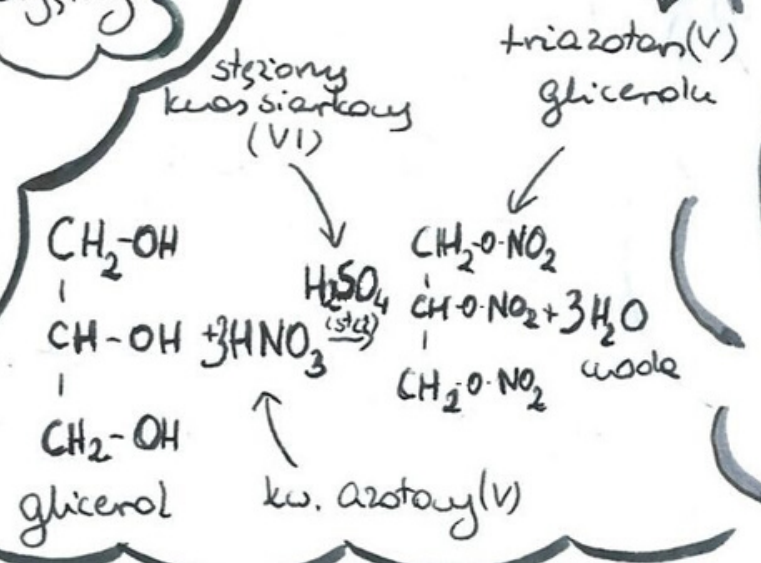 stężony
kwas siarkowy
(VI)
triazotan(V)
glicerolu
CH₂-OH
CH-OH
CH₂-OH
+3HNO₃
H₂SO₄
(stęż)
→
CH₂-O-NO₂
CH-O-NO₂
CH₂-O-NO₂
+3H₂O
woda
glicerol
kw. azotowy(V)